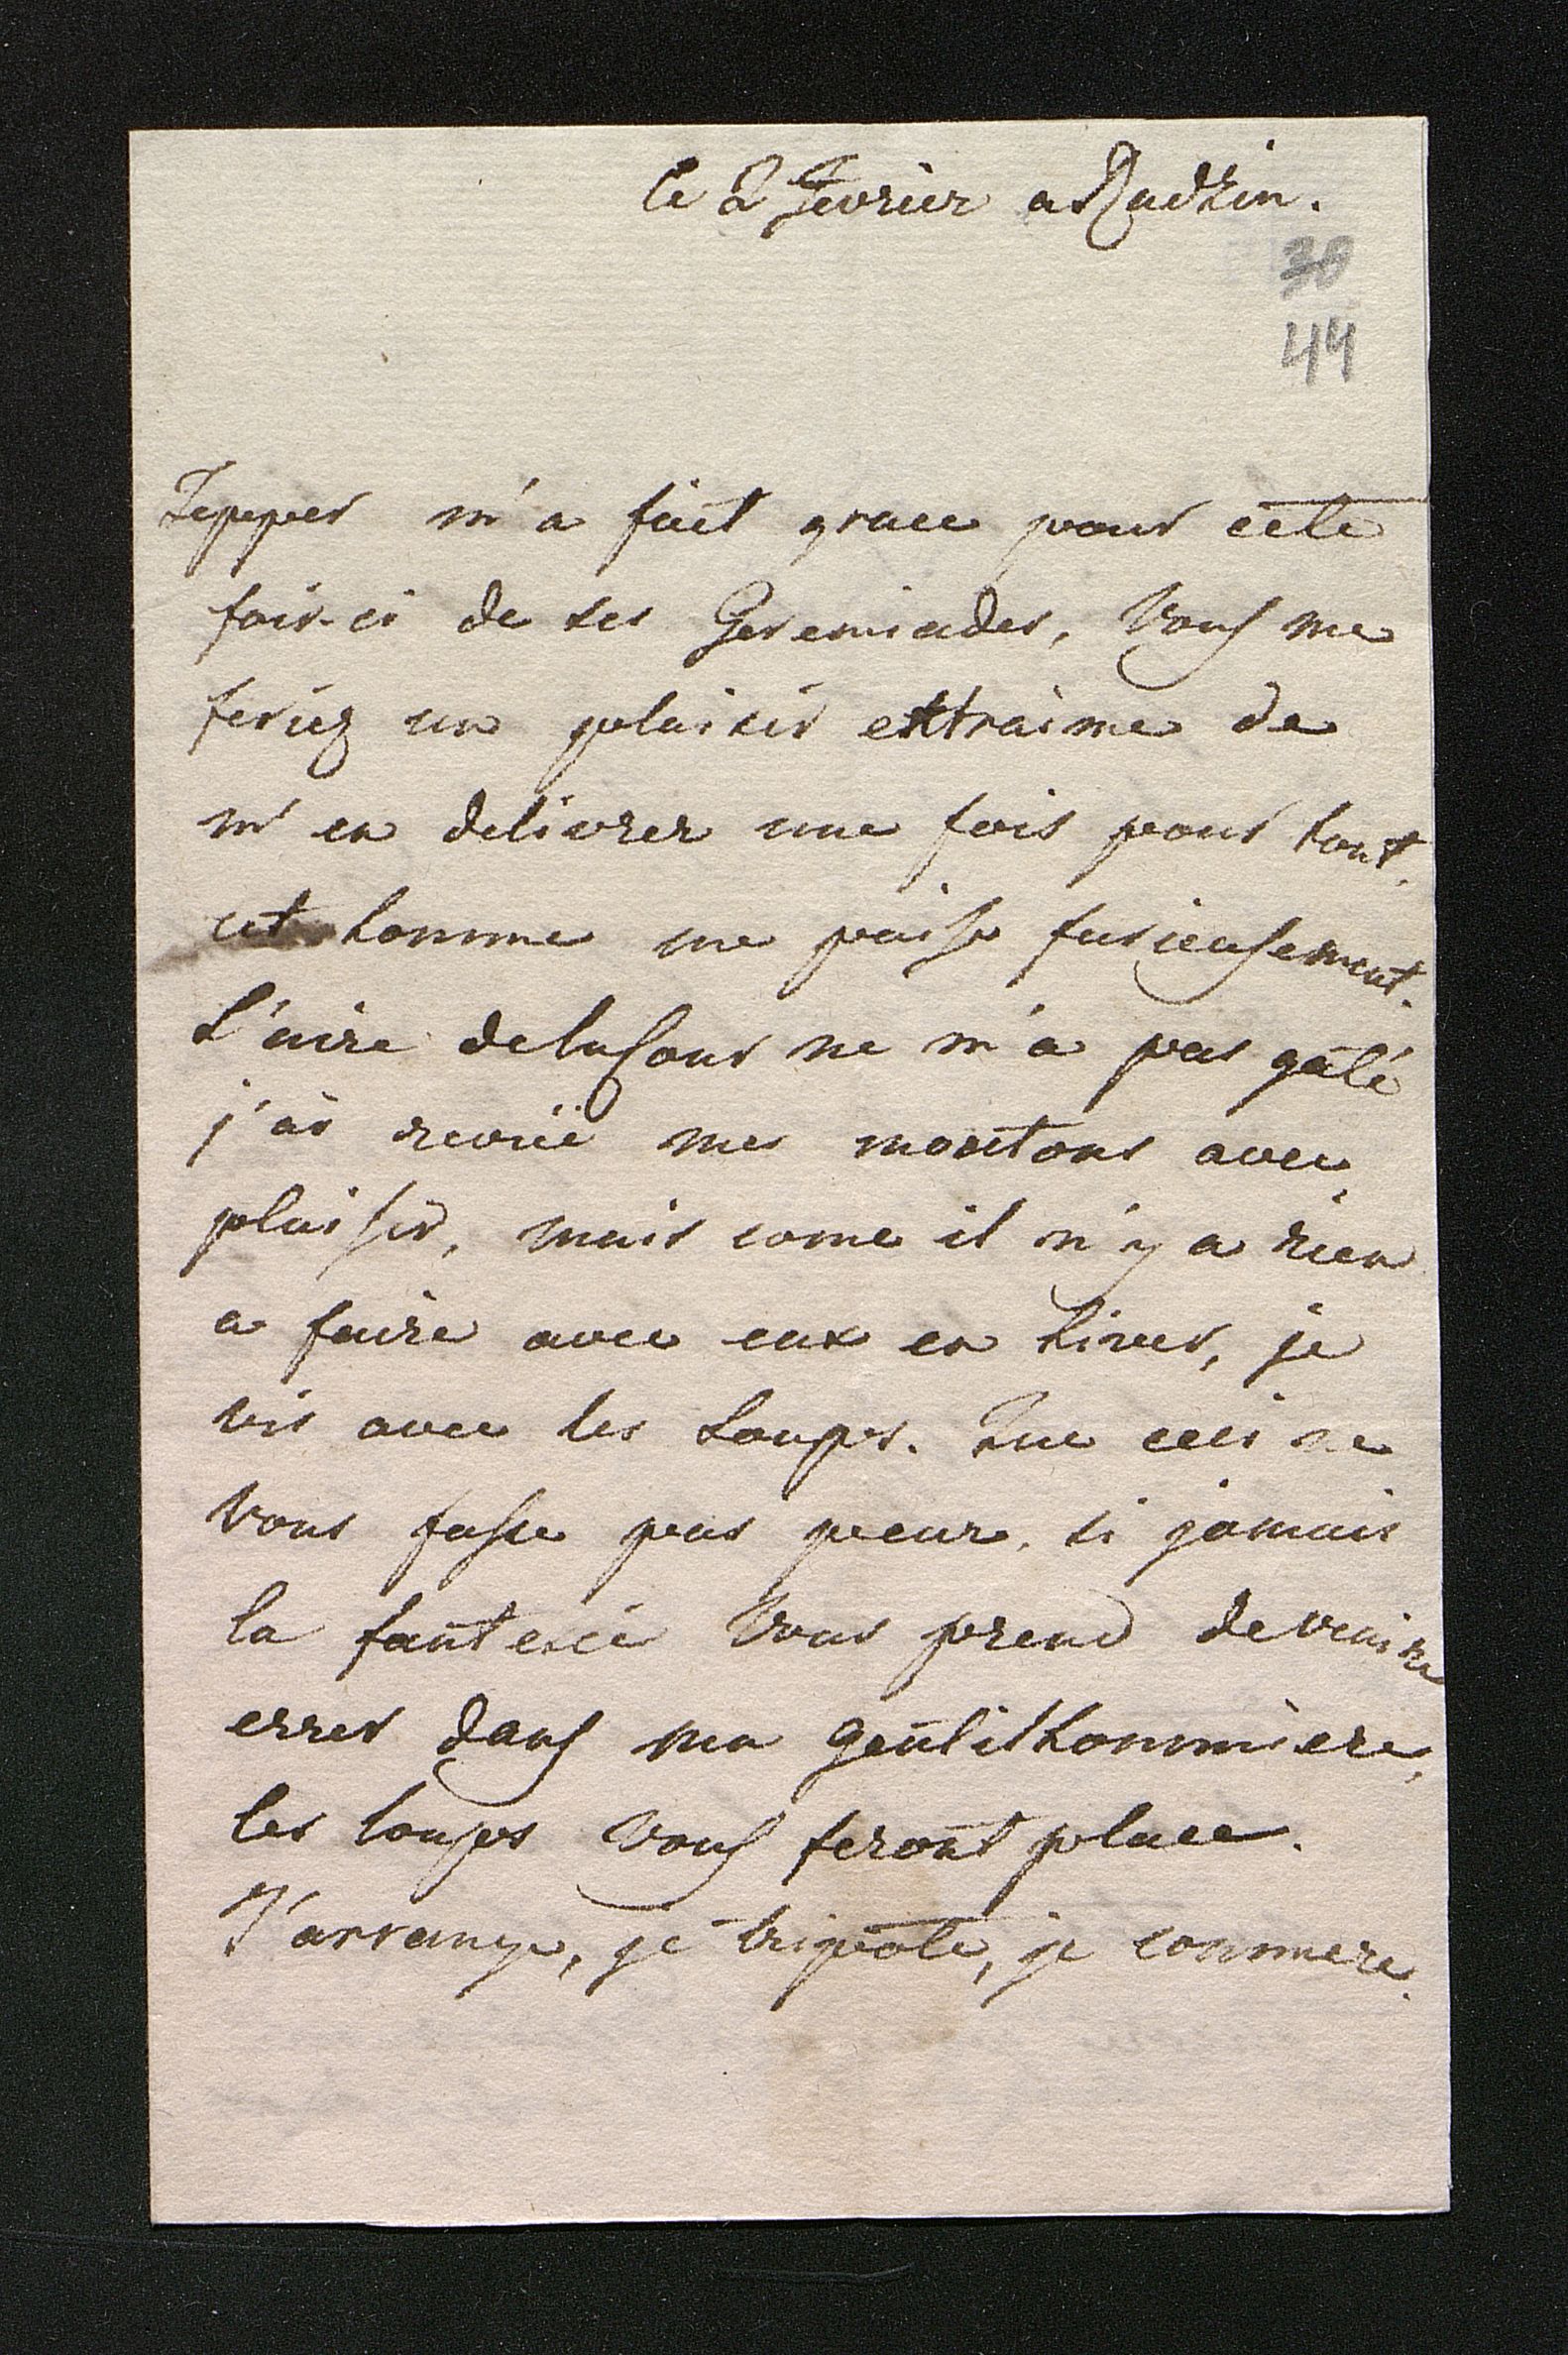 le 2 Fevrier a Radzin.
30
44
Tepper m'a fait grace pour cette
fois-ci de ses Geremiades, Vous me
feriez un plaisir extraime de
m'en delivrer une fois pour tout.
cet homme me paise furieusement.
L'aire de la Cour ne m'a pas gâté
j'ai revüe mes moutons avec
plaisir, mais come il n'y a rien
a faire avec eux en hiver, je
vis avec les Loups. Que ceci ne
Vous fasse pas peur, si jamais
la fantesie Vous prend de venire
errer dans ma gentilhommiere,
les loups Vous feront place.
J'arrange, je tripote, je commere.